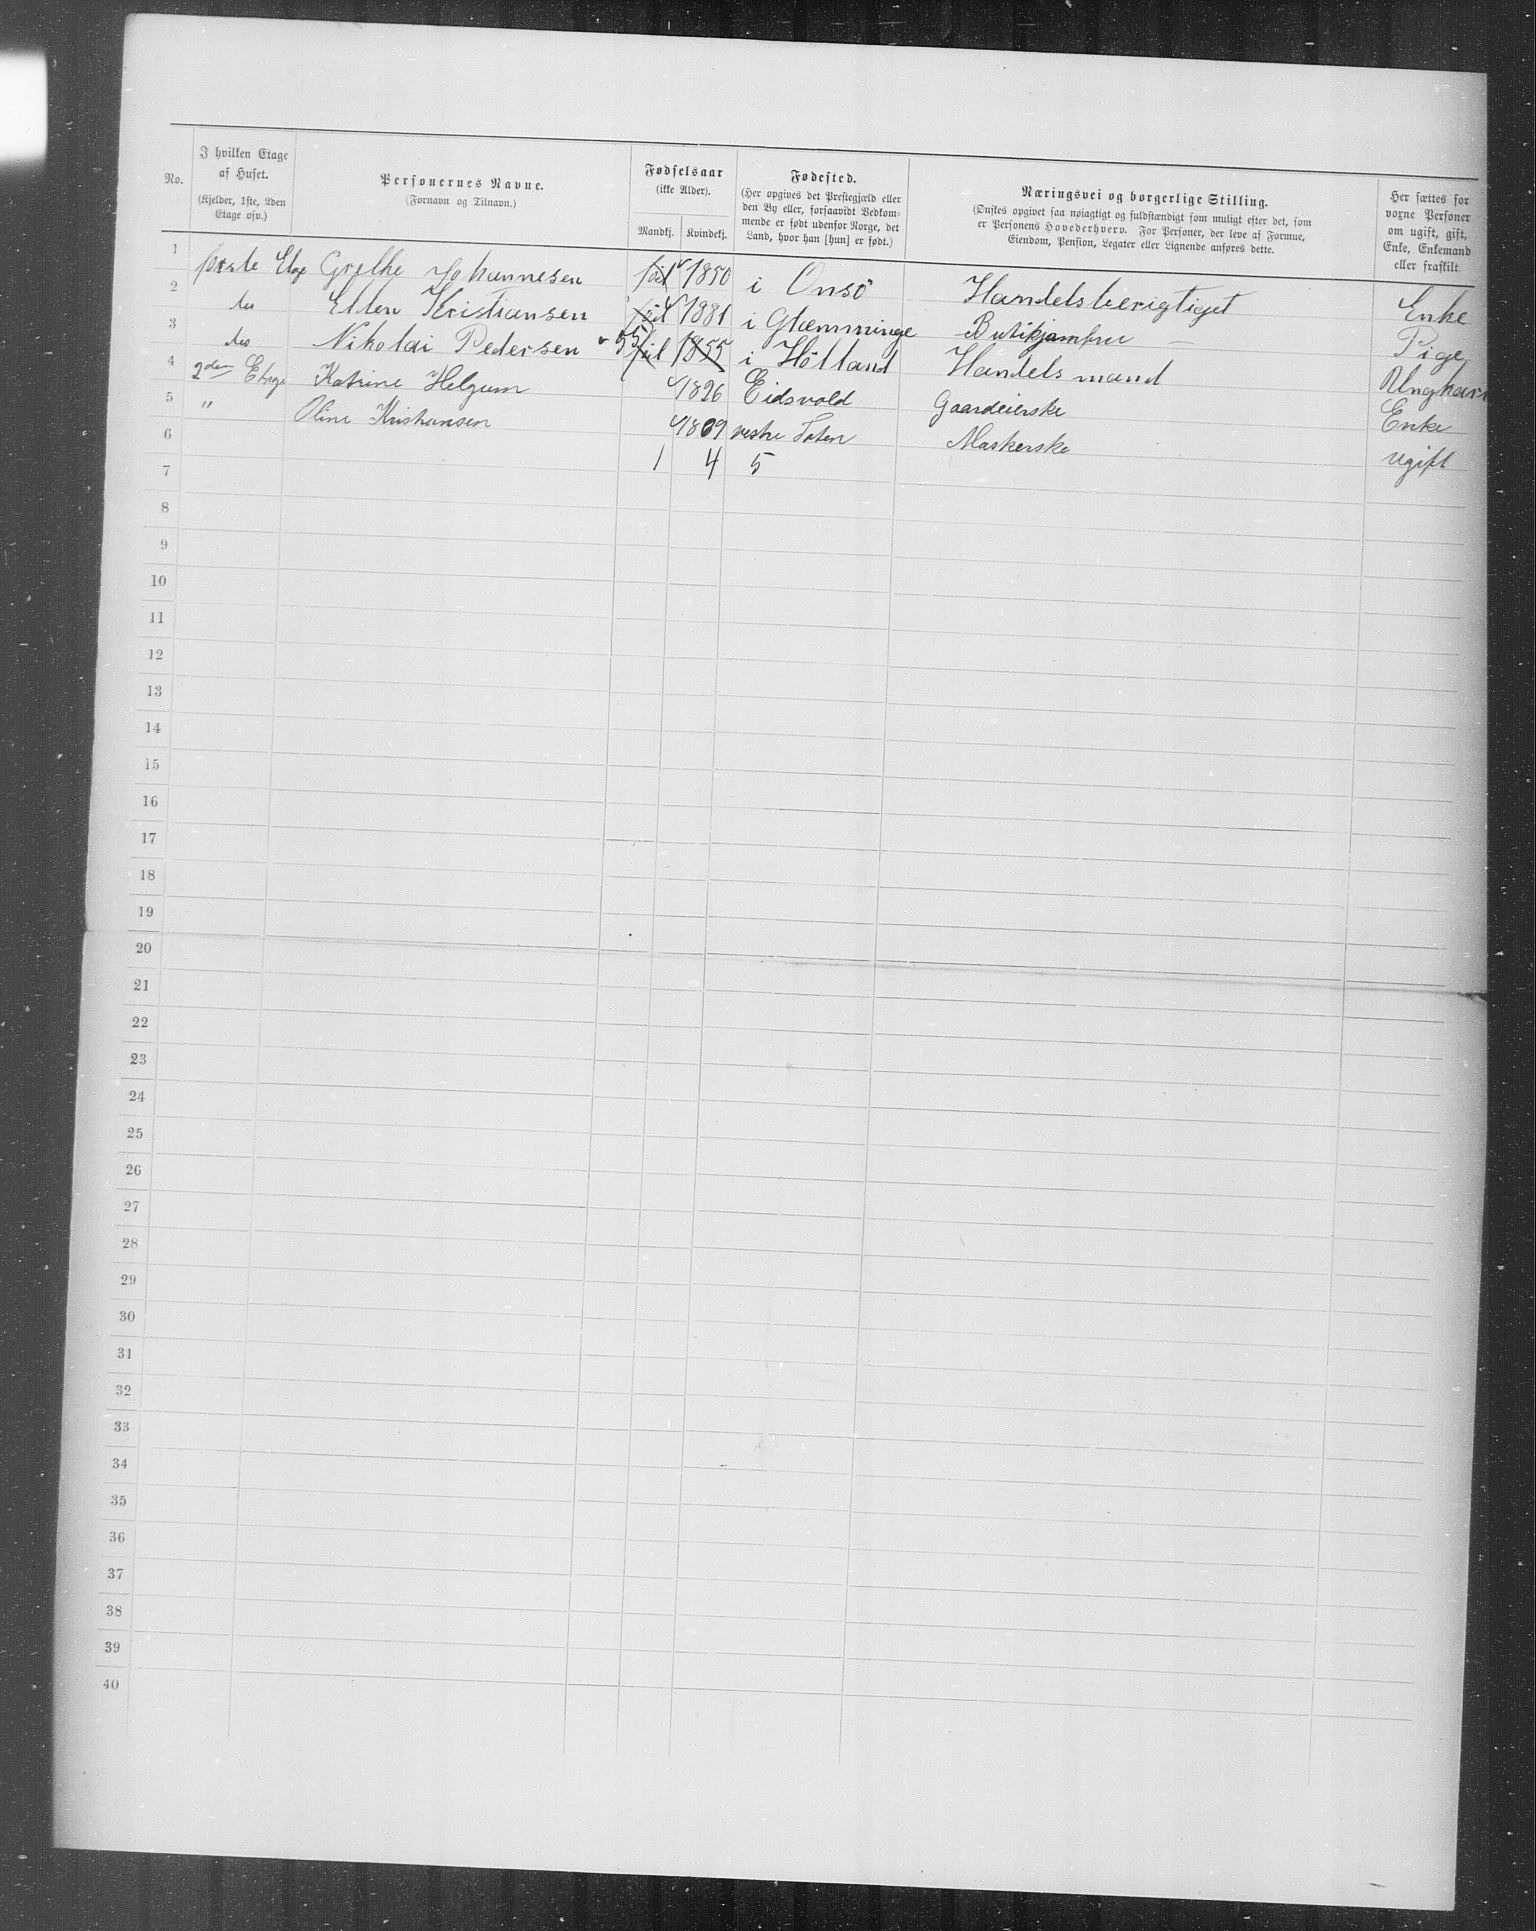 No.
I hvilken Etage
af Huset.
(Kjelder, 1ste, 2den
Etage osv.)
Personernes Navne.
(Fornavn og Tilnavn.)
Fødselsaar
(ikke Alder).
Mandkj. Kvindekj.
Fødested.
(Her opgives det Prestegjæld eller
den By eller, forsaavidt Vedkom-
mende er født udenfor Norge, det
Land, hvor han [hun] er født.)
Næringsvei og borgerlige Stilling.
(Ønskes opgivet saa nøiagtigt og fuldstændigt som muligt efter det, som
er Personens Hovederhverv. For Personer, der leve af Formue,
Eiendom, Pension, Legater eller Lignende anføres dette.
Her sættes for
voxne Personer
om ugift, gift,
Enke, Enkemand
eller fraskilt
1 første Etage Grethe Johannesen 1850 i Onsö Handelsberigtiget Enke
2 do Ellen Kristiansen 1881 i Glemminge Butikjomfru Pige
3 do Nikolai Pedersen 55 1855 i Hölland Handelsmand Ungkar
4 2den Etage Katrine Helgum 1826 Eidsvold Gaardeierske Enke
5 " Oline Kristiansen 1869 vestre Toten Maskerske ugift
6 1 4 5
7
8
9
10
11
12
13
14
15
16
17
18
19
20
21
22
23
24
25
26
27
28
29
30
31
32
33
34
35
36
37
38
39
40